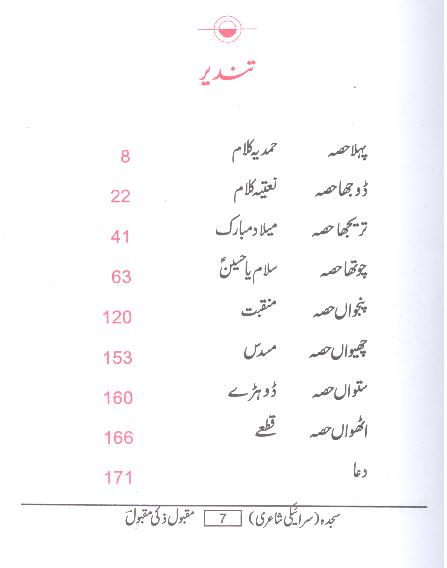 تندیر
پہلا حصہ حمدیہ کلام 8
ڈوجھا حصہ نعتیہ کلام 22
تریجھا حصہ میلاد مبارک 41
چوتھا حصہ سلام یا حسینؑ 63
پنجواں حصہ منقبت 120
چھیواں حصہ مسدس 153
ستواں حصہ ڈوہڑے 160
اٹھواں حصہ قطعے 166
دعا 171
سجدہ (سرائیکی شاعری) 7 مقبول ذکی مقبول